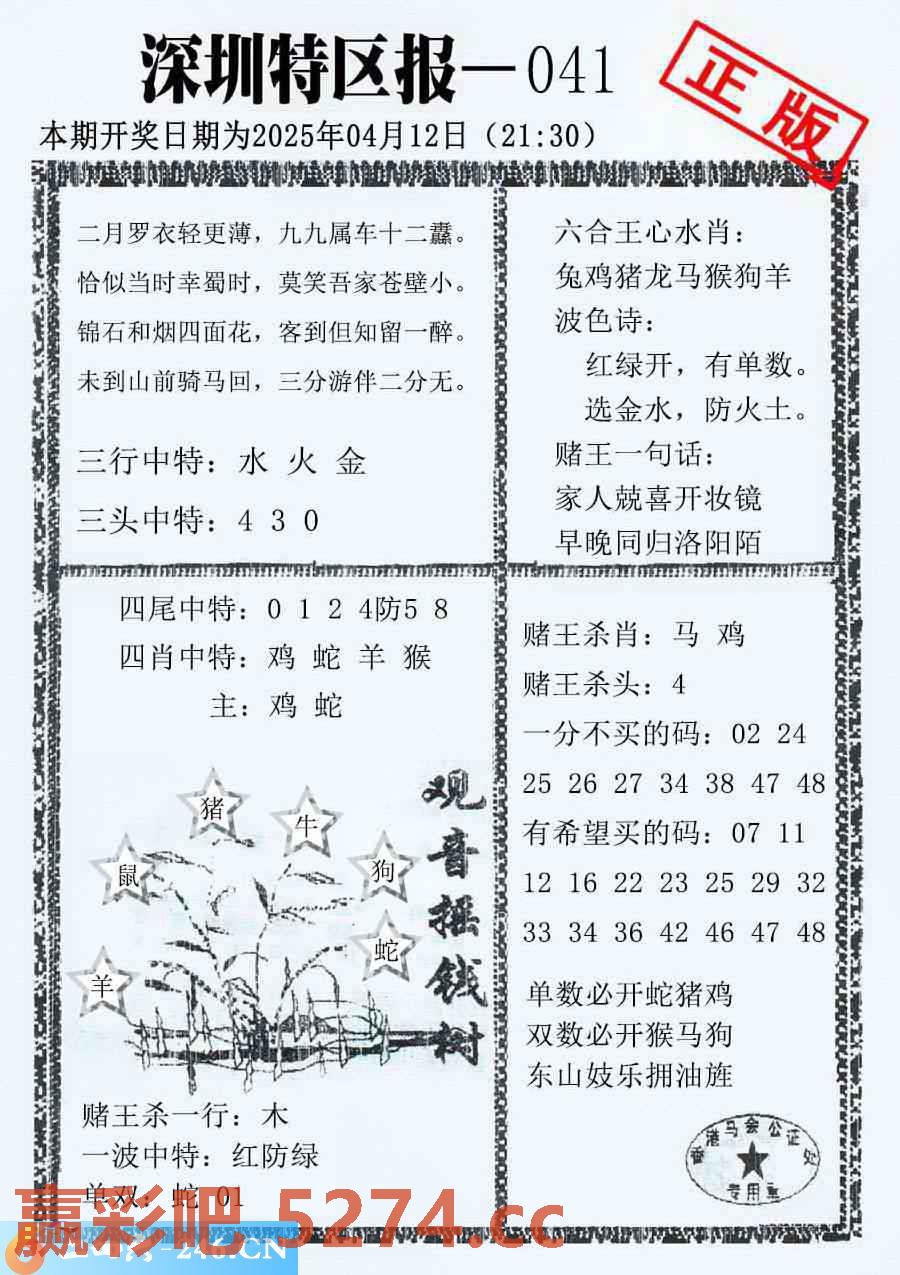 深圳特区报—041
正版
本期开奖日期为2025年04月12日（21:30）
二月罗衣轻更薄，九九属车十二纛。
恰似当时幸蜀时，莫笑吾家苍壁小。
锦石和烟四面花，客到但知留一醉。
未到山前骑马回，三分游伴二分无。
三行中特：水 火 金
三头中特：4 3 0
六合王心水肖：
兔鸡猪龙马猴狗羊
波色诗：
红绿开，有单数。
选金水，防火土。
赌王一句话：
家人兢喜开妆镜
早晚同归洛阳陌
四尾中特：0 1 2 4防5 8
四肖中特：鸡 蛇 羊 猴
主：鸡 蛇
猪
牛
鼠
狗
蛇
羊
观音摇钱树
赌王杀一行：木
一波中特：红防绿
单双：蛇 01
赌王杀肖：马 鸡
赌王杀头：4
一分不买的码：02 24
25 26 27 34 38 47 48
有希望买的码：07 11
12 16 22 23 25 29 32
33 34 36 42 46 47 48
单数必开蛇猪鸡
双数必开猴马狗
东山妓乐拥油旌
香港马会公证处
专用章
赢彩吧 5274.cc